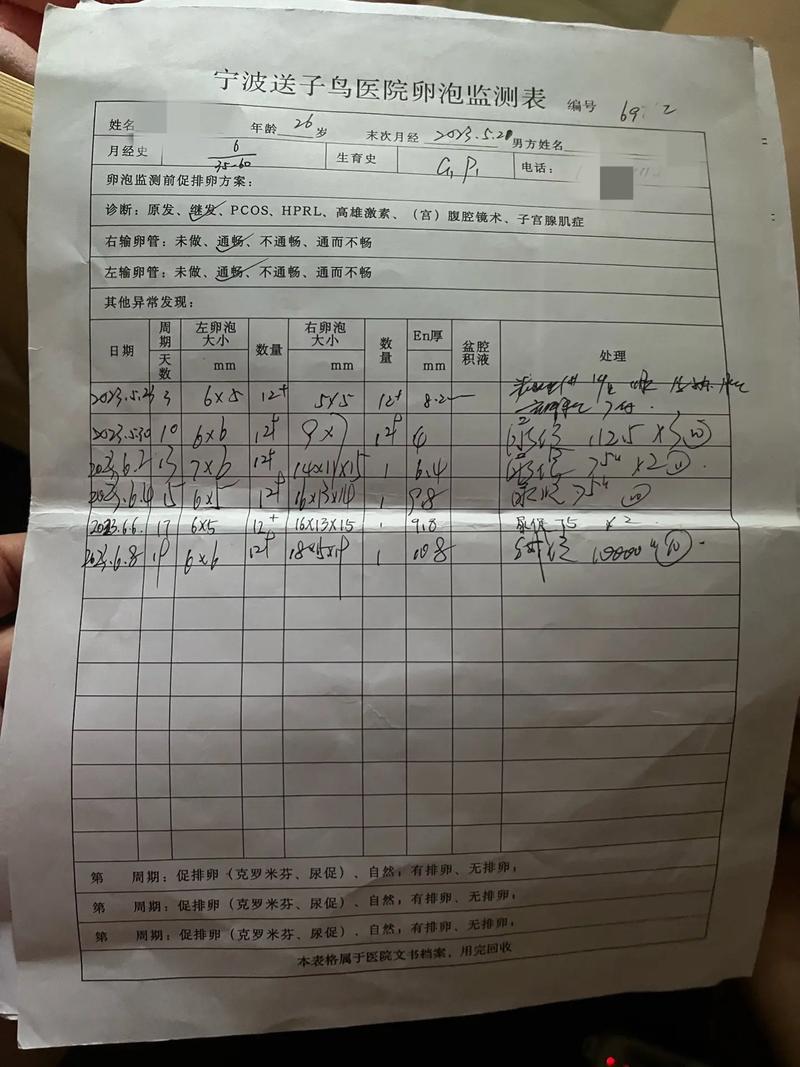 宁波送子鸟医院卵泡监测表 编号 69 2
姓名 年龄 26 岁 末次月经 2023.5.21 男方姓名
月经史 6/35-60 生育史 G1P1 电话：
卵泡监测前促排卵方案：
诊断：原发、继发、PCOS、HPRL、高雄激素、（宫）腹腔镜术、子宫腺肌症
右输卵管：未做、通畅、不通畅、通而不畅
左输卵管：未做、通畅、不通畅、通而不畅
其他异常发现：
日期 周期天数 左卵泡大小 mm 数量 右卵泡大小 mm 数量 En厚 mm 盆腔积液 处理
2023.5.23 3 6×5 12+ 5×5 12+ 8.2
2023.5.30 10 6×6 12+ 9×7 12+ 4 112.5×3
2023.6.2 13 7×6 12+ 14×11×15 1 6.4 75u×2
2023.6.4 15 6×5 12+ 16×13×14 1 9.8 尿促75u
2023.6.6 17 6×5 12+ 16×13×15 1 9.8 尿促75 ×2
2023.6.8 19 6×6 12+ 18×15×19 1 10.8 10000u
第 周期：促排卵（克罗米芬、尿促）、自然；有排卵、无排卵；
第 周期：促排卵（克罗米芬、尿促）、自然；有排卵、无排卵；
第 周期：促排卵（克罗米芬、尿促）、自然；有排卵、无排卵；
本表格属于医院文书档案，用完回收